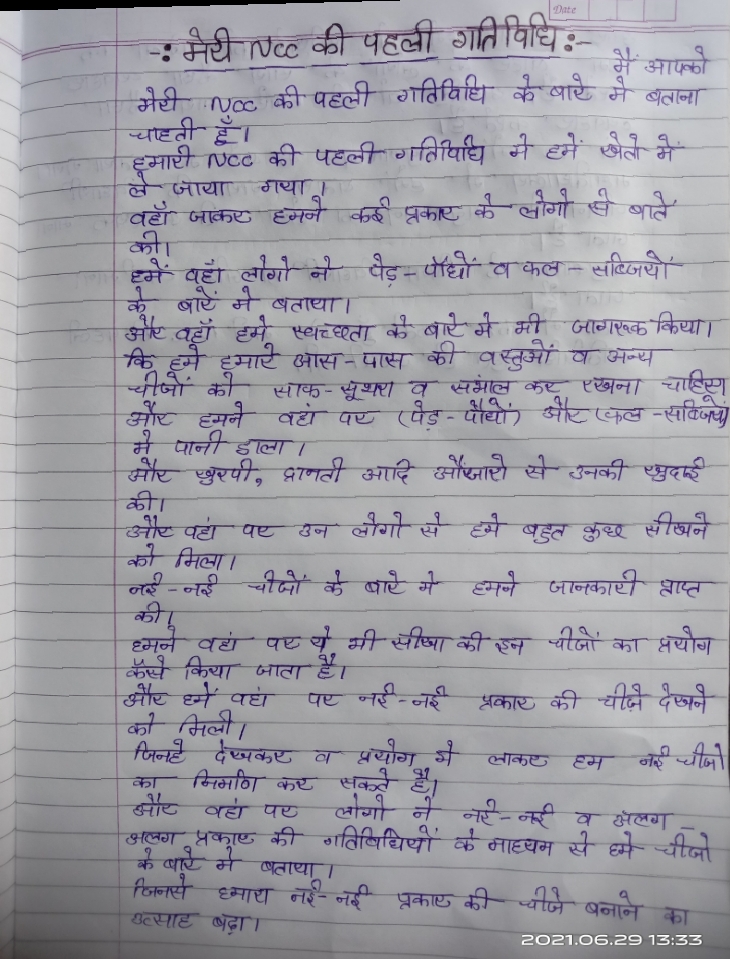 Date
-: मेरी NCC की पहली गतिविधि :-
मैं आपको
मेरी NCC की पहली गतिविधि के बारे मे बताना
चाहती हूँ।
हमारी NCC की पहली गतिविधि मे हमें खेतो में
ले जाया गया।
वहाँ जाकर हमने कई प्रकार के लोगो से बाते
की।
हमें वहाँ लोगो ने पेड़-पौधों व फल-सब्जियों
के बारें मे बताया।
और वहाँ हमे स्वच्छता के बारे मे भी जागरूक किया।
कि हमे हमारे आस-पास की वस्तुओं व अन्य
चीजों को साफ-सूथरा व संभाल कर रखना चाहिए
और हमने वहां पर (पेड़-पौधों) और (फल-सब्जियों)
मे पानी डाला।
और खुरपी, द्रानती आदि औंजारो से उनकी खुदाई
की।
और वहां पर उन लोगो से हमे बहुत कुछ सीखने
को मिला।
नई-नई चीजों के बारे मे हमने जानकारी प्राप्त
की।
हमने वहां पर ये भी सीखा की इन चीजों का प्रयोग
कैसे किया जाता है।
और हमें वहां पर नई-नई प्रकार की चीज़े देखने
को मिली।
जिनहे देखकर व प्रयोग मे लाकर हम नई चीजो
का निर्माण कर सकते है।
और वहां पर लोगो ने नई-नई व अलग-
अलग प्रकार की गतिविधियों के माध्यम से हमे चीजो
के बारे मे बताया।
जिनसे हमारा नई-नई प्रकार की चीजे बनाने का
उत्साह बढ़ा।
2021.06.29 13:33